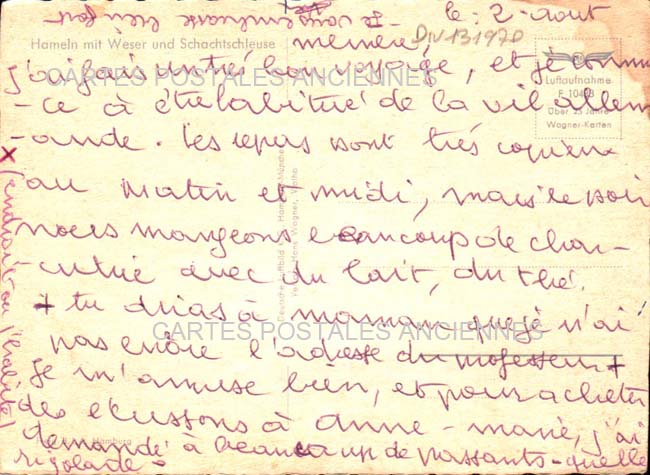 le : 2 - août
DIV 131970
mémère
j'ai fais un très bon voyage, et je commen
- ce à être habitué de la vie allem
- ande. Les repas sont très copieux
au matin et midi, mais le soir
nous mangeons beaucoup de char-
- cuterie avec du lait, du thé.
+ tu diras à maman que je n'ai
pas encore l'adresse du professeur +
Je m'amuse bien, et pour acheter
des écussons à anne-marie, j'ai
demandé à beaucoup de passants - quelle
rigolade -
Je vous embrasse bien fort
x (endroit où j'habite)
Hameln mit Weser und Schachtschleuse
Luftaufnahme
Über 25 Jahre
Wagner-Karten
CARTES POSTALES ANCIENNES
CARTES POSTALES ANCIENNES